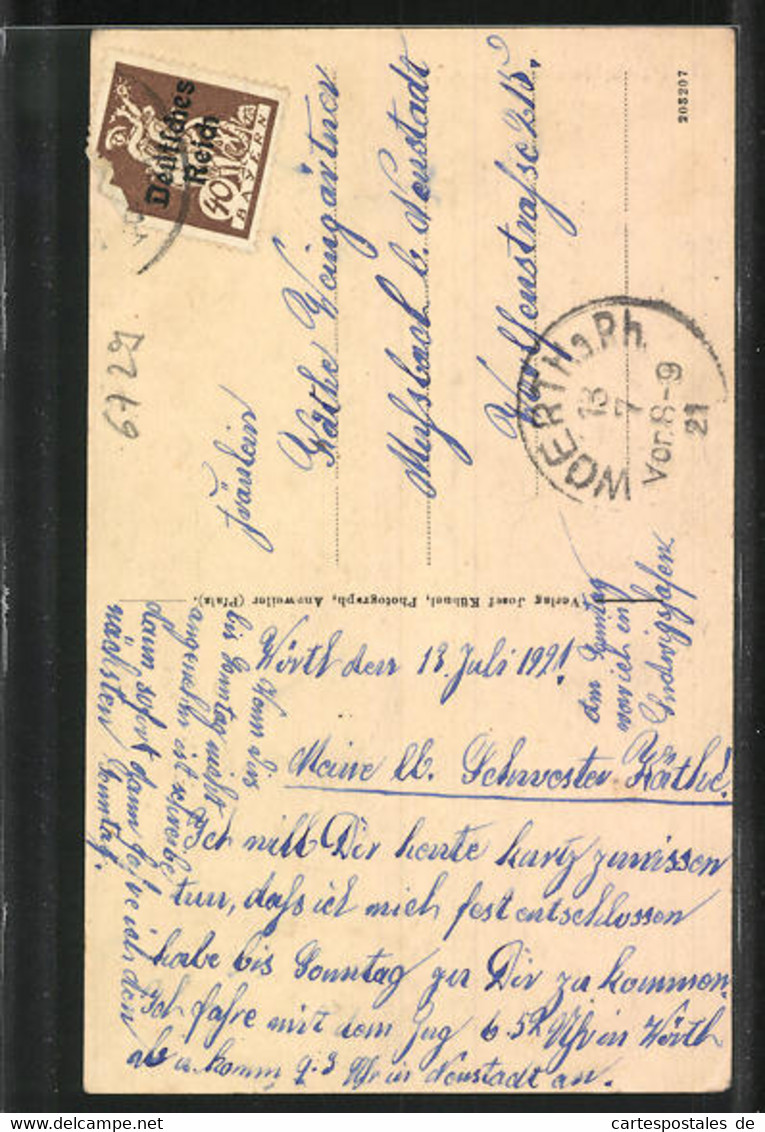 Deutsches
Reich
40
BAYERN
6729
Fräulein
Käthe Weingärtner
Mußbach b. Neustadt
215.
208207
WOERTH a.Rh.
13
7
Vor.8-9
21
(Verlag Josef Kühnel, Photograph, Annweiler (Pfalz).
Wörth den 13. Juli 1921!
Meine lb. Schwester Käthe!
Ich will Dir heute kurtz zuwissen
tun, daß ich mich fest entschlossen
habe bis Sonntag zu Dir zu kommen.
Ich fahre mit dem Zug 6 52 Uhr in Wörth
ab u. komm 9.3 Uhr in Neustadt an.
Wenn dirs
bis Sonntag nicht
angenehm ist schreibe
dann sofort dann fahre ich den
nächsten Sonntag.
am Sonntag
war ich in
Ludwigshafen
cartespostales de